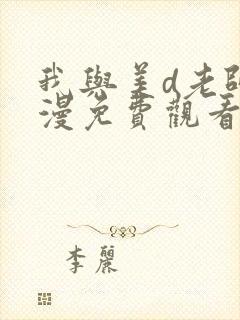 我與美d老師
漫免費觀看
李麗